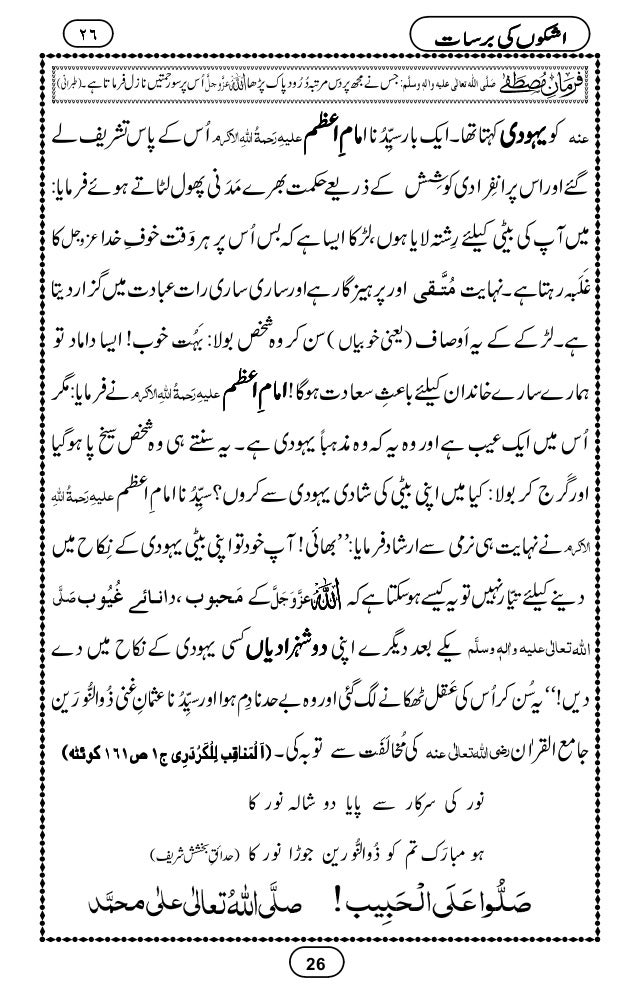 اشکوں کی برسات
٢٦
فرمانِ مصطفٰے صلَّی اللہ تعالٰی علیہ واٰلہٖ وسلَّم: جس نے مجھ پر دس مرتبہ دُرُود پاک پڑھا اللہ عزوجل اُس پر سو رحمتیں نازل فرماتا ہے۔ (طبرانی)
عنہ کو یہودی کہتا تھا۔ ایک بار سیِّدُنا امامِ اعظم علیہ رَحمۃُ اللہِ الاکرم اُس کے پاس تشریف لے
گئے اور اس پر انفِرادی کوشِش کے ذریعے حکمت بھرے مَدَنی پھول لٹاتے ہوئے فرمایا:
میں آپ کی بیٹی کیلئے رِشتہ لایا ہوں، لڑکا ایسا ہے کہ بس اُس پر ہر وَقت خوفِ خدا عزوجل کا
غَلَبہ رہتا ہے۔ نہایت مُتَّقی اور پرہیز گار ہے اور ساری ساری رات عبادت میں گزار دیتا
ہے۔ لڑکے کے یہ اَوصاف (یعنی خوبیاں) سن کر وہ شخص بولا: بَہُت خوب! ایسا داماد تو
ہمارے سارے خاندان کیلئے باعثِ سعادت ہوگا! امامِ اعظم علیہ رَحمۃُ اللہِ الاکرم نے فرمایا: مگر
اُس میں ایک عیب ہے اور وہ یہ کہ وہ مذہباً یہودی ہے۔ یہ سنتے ہی وہ شخص سیخ پا ہوگیا
اور گَرج کر بولا: کیا میں اپنی بیٹی کی شادی یہودی سے کروں؟ سیِّدُنا امامِ اعظم علیہ رَحمۃُ اللہِ
الاکرم نے نہایت ہی نرمی سے ارشاد فرمایا: ’’بھائی! آپ خود تو اپنی بیٹی یہودی کے نِکاح میں
دینے کیلئے تیّار نہیں تو یہ کیسے ہوسکتا ہے کہ اللہ عَزَّوَجَلَّ کے مَحبوب، دانائے غُیُوب صَلَّی
اللہ تعالٰی علیہ واٰلہٖ وسلَّم یکے بعد دیگرے اپنی دو شہزادیاں کسی یہودی کے نکاح میں دے
دیں!‘‘ یہ سُن کر اُس کی عَقل ٹھکانے لگ گئی اور وہ بے حد نادِم ہوا اور سیِّدُنا عثمانِ غنی ذُوالنُّورَین
جامع القراٰن رضی اللہ تعالٰی عنہ کی مُخالَفت سے توبہ کی۔ (اَلْمَناقِب لِلْکَرْدَرِی ج١ ص١٦١ کوئٹہ)
نور کی سرکار سے پایا دو شالہ نور کا
ہو مبارَک تم کو ذُوالنُّورین جوڑا نور کا (حدائقِ بخشش شریف)
صَلُّوا عَلَی الْحَبِیب! صلَّی اللہُ تعالٰی علٰی محمَّد
26